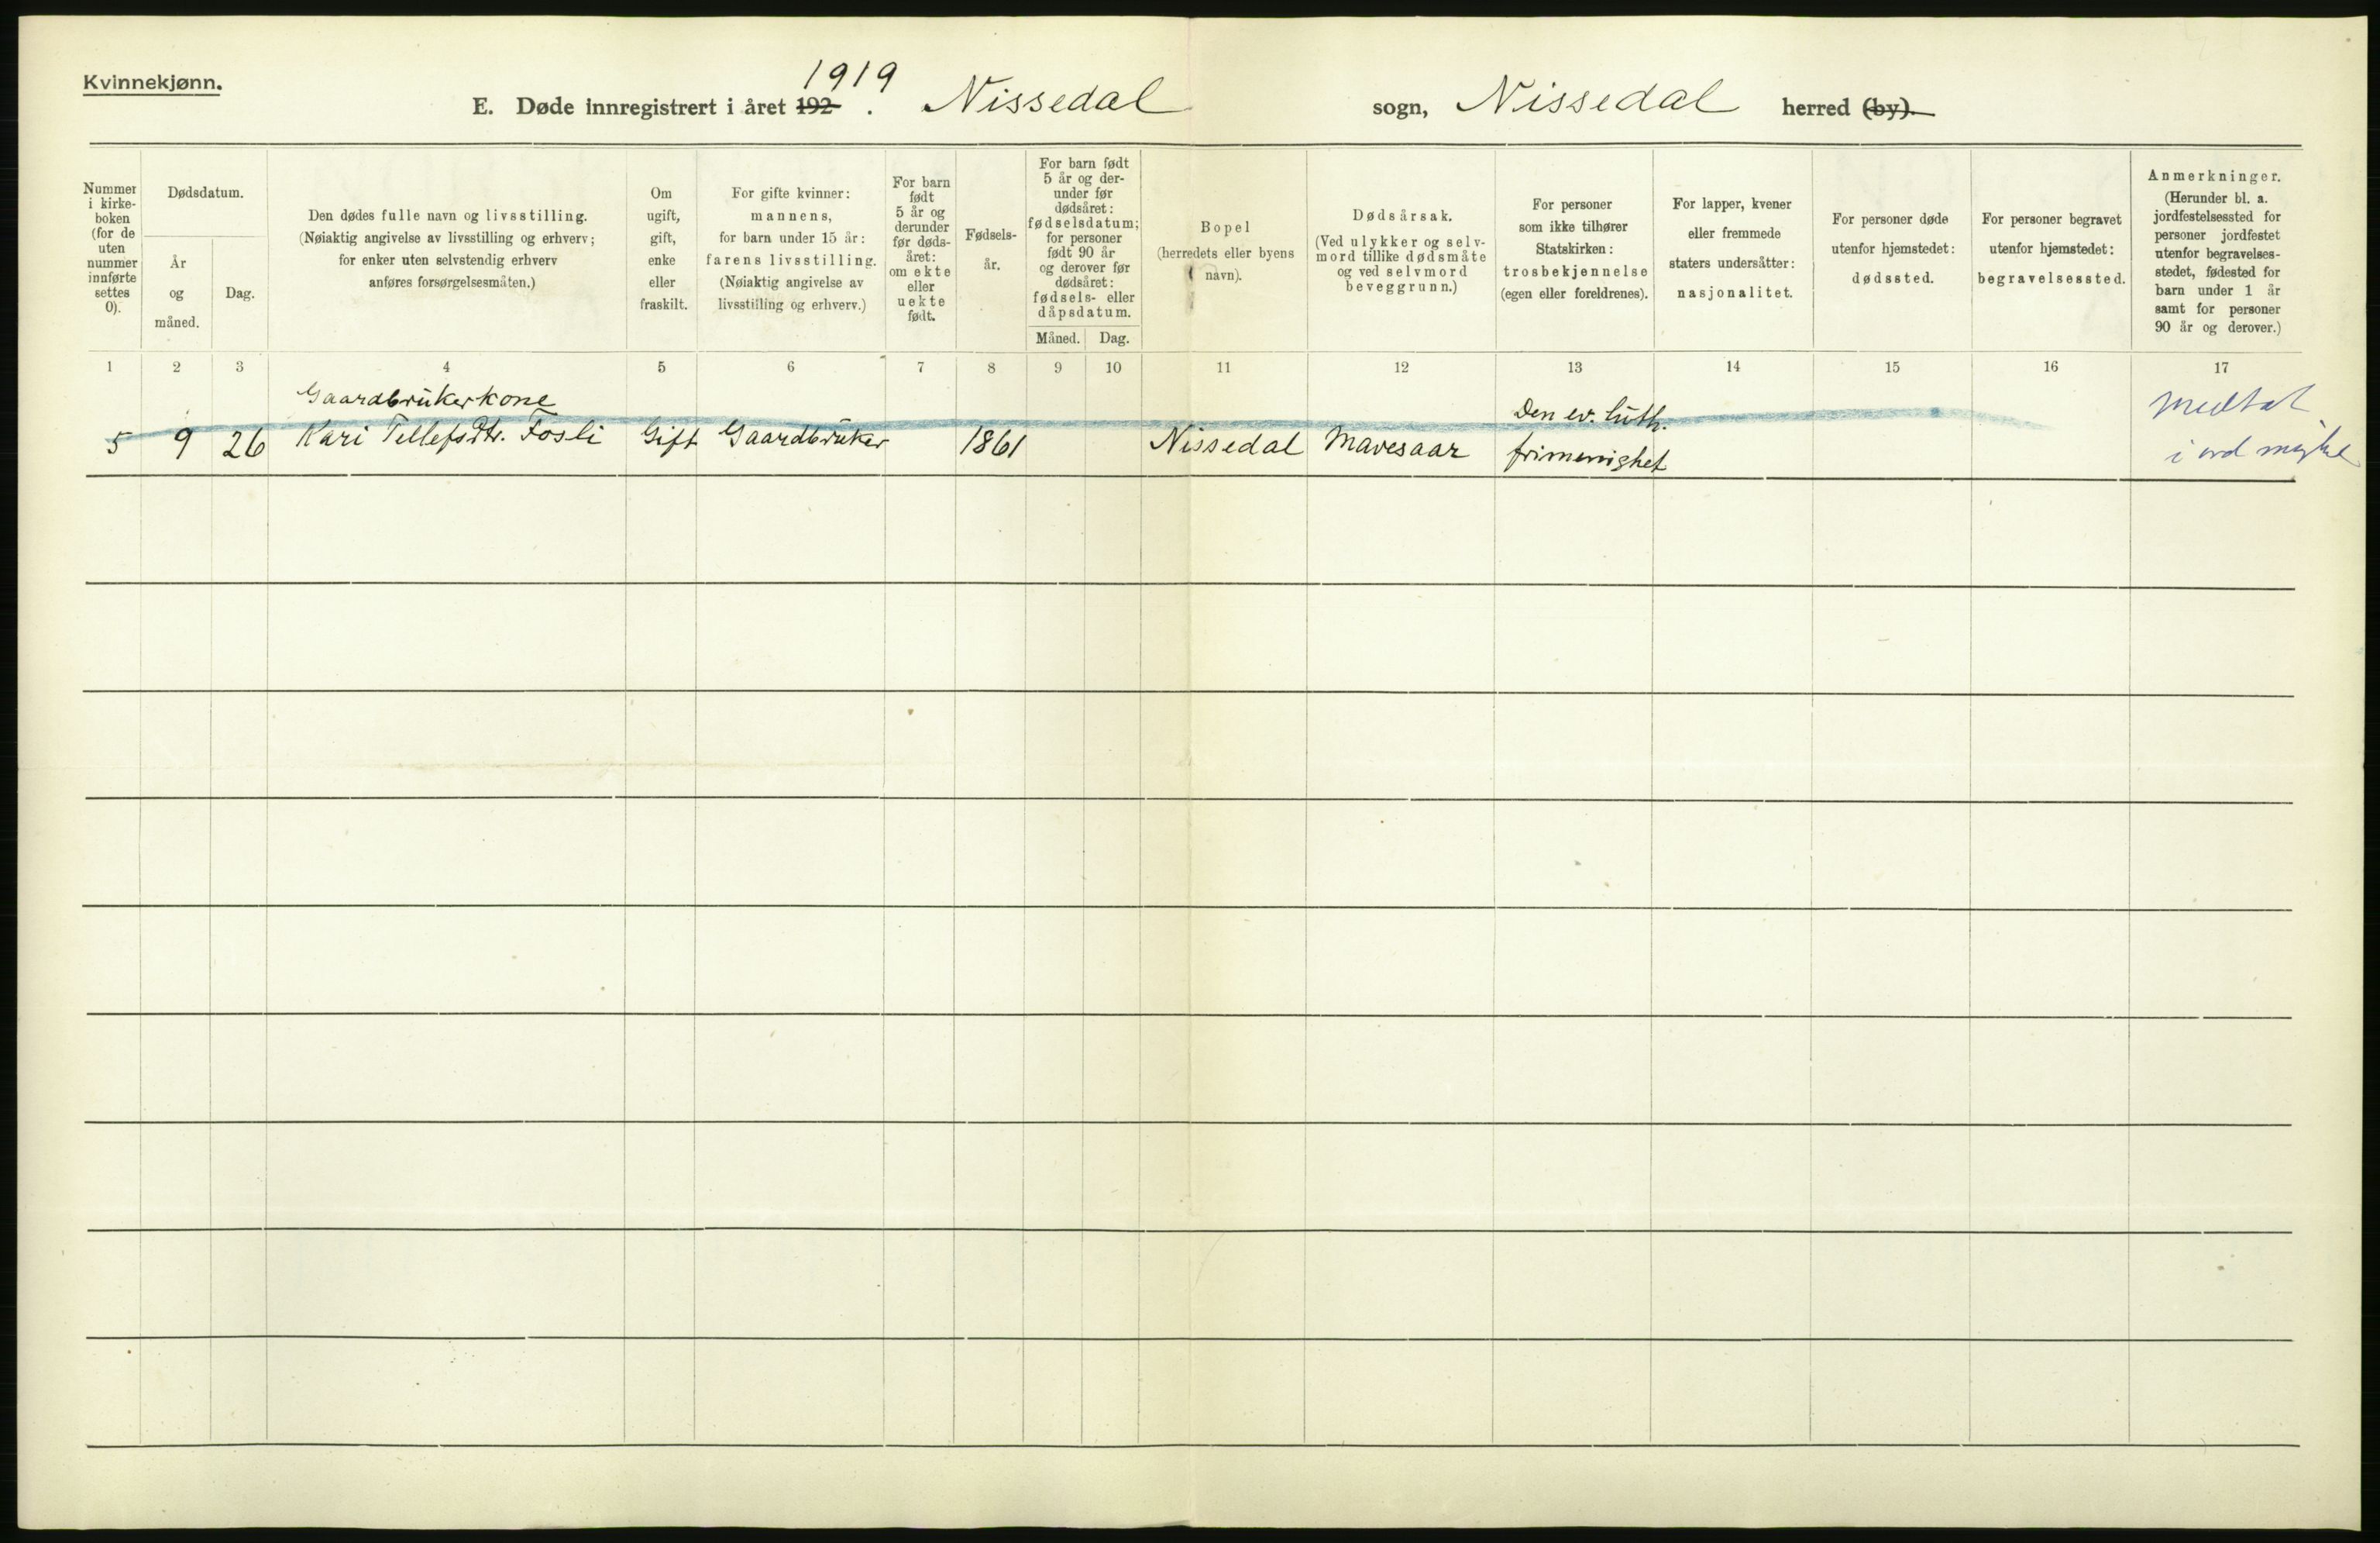 Kvinnekjønn.
1919
E. Døde innregistrert i året 192 . Nissedal sogn, Nissedal herred (by).
Nummer
i kirke-
boken
(for de
uten
nummer
innførte
settes
0).
Dødsdatum.
År
og
måned.
Dag.
Den dødes fulle navn og livsstilling.
(Nøiaktig angivelse av livsstilling og erhverv;
for enker uten selvstendig erhverv
anføres forsørgelsesmåten.)
Om
ugift,
gift,
enke
eller
fraskilt.
For gifte kvinner:
mannens,
for barn under 15 år:
farens livsstilling.
(Nøiaktig angivelse av
livsstilling og erhverv.)
For barn
født
5 år og
derunder
før døds-
året:
om ekte
eller
uekte
født.
Fødsels-
år.
For barn født
5 år og der-
under før
dødsåret:
fødselsdatum;
for personer
født 90 år
og derover før
dødsåret:
fødsels- eller
dåpsdatum.
Måned. Dag.
Bopel
(herredets eller byens
navn).
Dødsårsak.
(Ved ulykker og selv-
mord tillike dødsmåte
og ved selvmord
beveggrunn.)
For personer
som ikke tilhører
Statskirken:
trosbekjennelse
(egen eller foreldrenes).
For lapper, kvener
eller fremmede
staters undersåtter:
nasjonalitet.
For personer døde
utenfor hjemstedet:
dødssted.
For personer begravet
utenfor hjemstedet:
begravelsessted.
Anmerkninger.
(Herunder bl. a.
jordfestelsessted for
personer jordfestet
utenfor begravelses-
stedet, fødested for
barn under 1 år
samt for personer
90 år og derover.)
1 2 3 4 5 6 7 8 9 10 11 12 13 14 15 16 17
Gaardbrukerkone Den ev. luth. Medtat
5 9 26 Kari Tellefsdtr. Fosli Gift Gaardbruker 1861 Nissedal Mavesaar frimenighet i